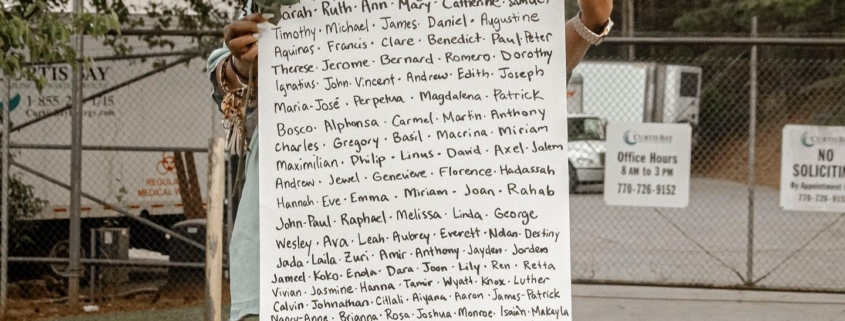 Sarah · Ruth · Ann · Mary · Catherine · Samuel
Timothy · Michael · James · Daniel · Augustine
Aquinas · Francis · Clare · Benedict · Paul · Peter
Therese · Jerome · Bernard · Romero · Dorothy
Ignatius · John · Vincent · Andrew · Edith · Joseph
Maria-José · Perpetua · Magdalena · Patrick
Bosco · Alphonsa · Carmel · Martin · Anthony
Charles · Gregory · Basil · Macrina · Miriam
Maximilian · Philip · Linus · David · Axel · Salem
Andrew · Jewel · Genevieve · Florence · Hadassah
Hannah · Eve · Emma · Miriam · Joan · Rahab
John-Paul · Raphael · Melissa · Linda · George
Wesley · Ava · Leah · Aubrey · Everett · Nolan · Destiny
Jada · Laila · Zuri · Amir · Anthony · Jayden · Jorden
Jameel · Koko · Enda · Dara · Joon · Lily · Ren · Retta
Vivian · Jasmine · Hanna · Tamir · Wyatt · Knox · Luther
Calvin · Johnathan · Citlali · Aiyana · Aaron · James-Patrick
Nancy-Anne · Brianna · Rosa · Joshua · Monroe · Isaiah · Makayla
URTIS BAY
1-855-2
REGUL
MEDICAL
CURTIS BAY
Office Hours
8 AM to 3 PM
770-726-9152
CURTIS BA
NO
SOLICITIN
By Appointment
770-726-915